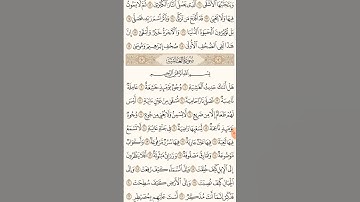 وَيَتَجَنَّبُهَا ٱلْأَشْقَى ١١ ٱلَّذِى يَصْلَى ٱلنَّارَ ٱلْكُبْرَىٰ ١٢ ثُمَّ لَا يَمُوتُ
فِيهَا وَلَا يَحْيَىٰ ١٣ قَدْ أَفْلَحَ مَن تَزَكَّىٰ ١٤ وَذَكَرَ ٱسْمَ رَبِّهِۦ فَصَلَّىٰ ١٥
بَلْ تُؤْثِرُونَ ٱلْحَيَوٰةَ ٱلدُّنْيَا ١٦ وَٱلْأٓخِرَةُ خَيْرٌ وَأَبْقَىٰٓ ١٧ إِنَّ
هَٰذَا لَفِى ٱلصُّحُفِ ٱلْأُولَىٰ ١٨ صُحُفِ إِبْرَٰهِيمَ وَمُوسَىٰ ١٩
سُورَةُ الغَاشِيَةِ
بِسْمِ ٱللَّهِ ٱلرَّحْمَٰنِ ٱلرَّحِيمِ
هَلْ أَتَىٰكَ حَدِيثُ ٱلْغَٰشِيَةِ ١ وُجُوهٌ يَوْمَئِذٍ خَٰشِعَةٌ ٢ عَامِلَةٌ
نَّاصِبَةٌ ٣ تَصْلَىٰ نَارًا حَامِيَةً ٤ تُسْقَىٰ مِنْ عَيْنٍ ءَانِيَةٍ ٥ لَّيْسَ
لَهُمْ طَعَامٌ إِلَّا مِن ضَرِيعٍ ٦ لَّا يُسْمِنُ وَلَا يُغْنِى مِن جُوعٍ ٧ وُجُوهٌ
يَوْمَئِذٍ نَّاعِمَةٌ ٨ لِّسَعْيِهَا رَاضِيَةٌ ٩ فِى جَنَّةٍ عَالِيَةٍ ١٠ لَّا تَسْمَعُ
فِيهَا لَٰغِيَةً ١١ فِيهَا عَيْنٌ جَارِيَةٌ ١٢ فِيهَا سُرُرٌ مَّرْفُوعَةٌ ١٣ وَأَكْوَابٌ
مَّوْضُوعَةٌ ١٤ وَنَمَارِقُ مَصْفُوفَةٌ ١٥ وَزَرَابِىُّ مَبْثُوثَةٌ ١٦ أَفَلَا يَنظُرُونَ
إِلَى ٱلْإِبِلِ كَيْفَ خُلِقَتْ ١٧ وَإِلَى ٱلسَّمَآءِ كَيْفَ رُفِعَتْ ١٨ وَإِلَى
ٱلْجِبَالِ كَيْفَ نُصِبَتْ ١٩ وَإِلَى ٱلْأَرْضِ كَيْفَ سُطِحَتْ ٢٠
فَذَكِّرْ إِنَّمَآ أَنتَ مُذَكِّرٌ ٢١ لَّسْتَ عَلَيْهِم بِمُصَيْطِرٍ ٢٢